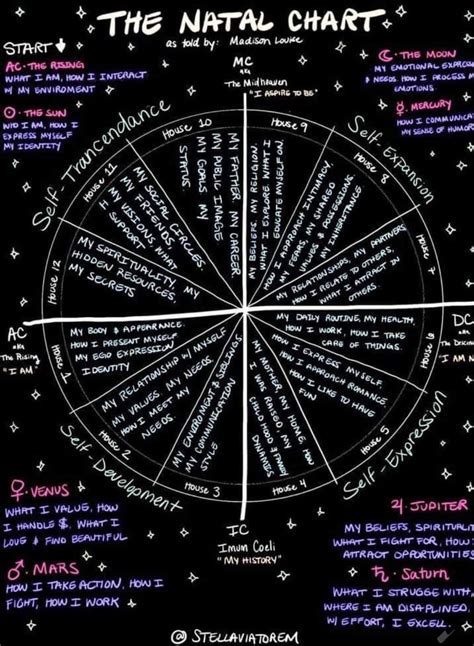 THE NATAL CHART
as told by: Madison Louise
START
AC · THE RISING
WHAT I AM, HOW I INTERACT
W/ MY ENVIROMENT
THE SUN
WHO I AM, HOW I
EXPRESS MYSELF
MY IDENTITY
MC
aka
The Midheaven
"I ASPIRE TO BE"
THE MOON
MY EMOTIONAL
& NEEDS HOW I PROCESS
EMOTIONS
MERCURY
HOW I COMMUNICA
MY SENSE OF HUMO
Self-Trancendance
House 12
MY SPIRITUALITY, MY
HIDDEN RESOURCES,
MY SECRETS
House 11
MY SOCIAL CIRCLES,
MY FRIENDS,
MY VISIONS, WHAT
SUPPORT
House 10
MY FATHER, MY CAREER
MY PUBLIC IMAGE
MY GOALS MY
STATUS
Self-Expansion
House 9
MY BELIEFS, MY RELIGION,
WHAT I EXPLORE, WHAT I
EDUCATE MYSELF ON
House 8
HOW I APPROACH INTIMACY,
MY FEARS, MY SHARED
VALUES & POSSESSIONS,
MY INHERITANCE
House 7
MY RELATIONSHIPS, MY PARTNERS
HOW I RELATE TO OTHERS,
WHAT I ATTRACT IN
OTHERS.
AC
aka
The Rising
"I AM"
DC
"I AM N
House 1
MY BODY & APPEARANCE.
HOW I PRESENT MYSELF
MY EGO EXPRESSION
IDENTITY
House 2
MY RELATIONSHIP W/ MYSELF
MY VALUES, MY NEEDS,
HOW I MEET MY
NEEDS.
House 3
MY ENVIROMENT & SIBLINGS,
MY COMMUNICATION
STYLE
Self-Development
House 4
MY MOTHER, MY HOME, HOW
I WAS RAISED, MY
CHILD HOOD & FAMILY
DYNAMICS
House 5
HOW I EXPRESS MYSELF,
HOW I APPROACH ROMANCE,
HOW I LIKE TO HAVE
FUN
House 6
MY DAILY ROUTINE, MY HEALTH,
HOW I WORK, HOW I TAKE
CARE OF THINGS.
Self-Expression
♀ · VENUS
WHAT I VALUE, HOW
I HANDLE $, WHAT I
LOVE & FIND BEAUTIFUL
♂ · MARS
HOW I TAKE ACTION, HOW I
FIGHT, HOW I WORK
IC
Imum Coeli
"MY HISTORY"
♃ · JUPITER
MY BELIEFS, SPIRITUALI
WHAT I FIGHT FOR, HOW
ATTRACT OPPORTUNITIES
♄ · Saturn
WHAT I STRUGGLE WITH,
WHERE I AM DISAPLINED,
W/ EFFORT, I EXCELL.
@ STELLAVIATOREM